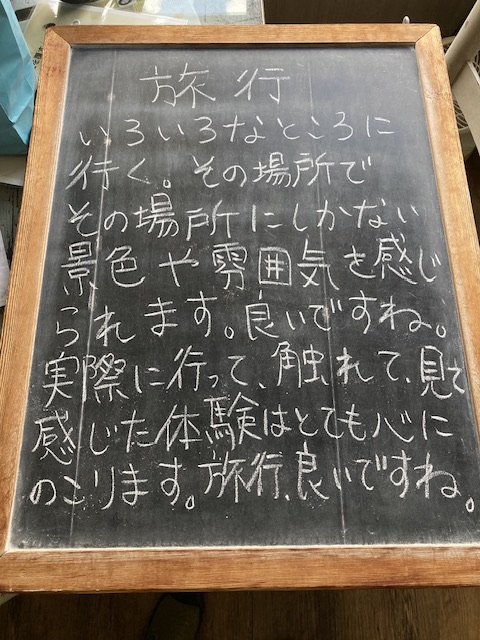 旅行
いろいろなところに
行く。その場所で
その場所にしかない
景色や雰囲気を感じ
られます。良いですね。
実際に行って、触れて、見て
感じた体験はとても心に
のこります。旅行、良いですね。